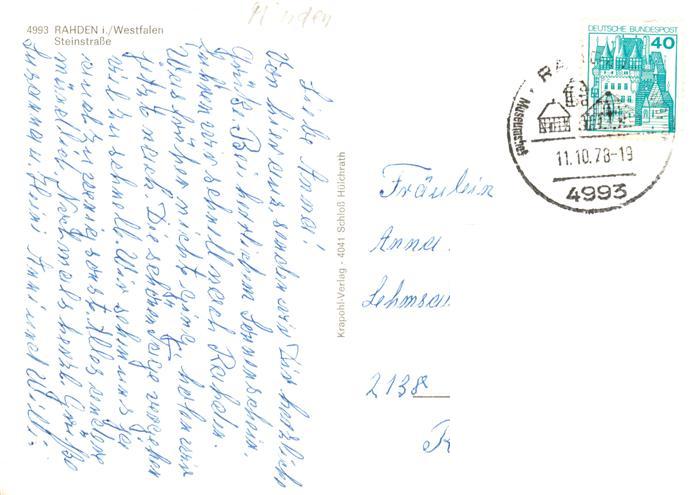 Minden
4993 RAHDEN i./Westfalen
Steinstraße
Liebe Anna!
Von hier aus, senden wir Dir herzlich
Grüße. Bei herrlichem Sonnenschein,
fuhren wir schnell nach Rahden.
Was bisher nicht ging, holen wir
jetzt nach. Die schönen Tage vergehen
viel zu schnell. Wir sehen uns ja
viel zu wenig sonst. Alles andere
mündlich. Nochmals herzl. Grüße
Susanna u. Heini Anni und Willi.
Krapohl-Verlag · 4041 Schloß Hülchrath
DEUTSCHE BUNDESPOST
40
Museumshof
11.10.78-19
4993
Fräulein
Anna
2138